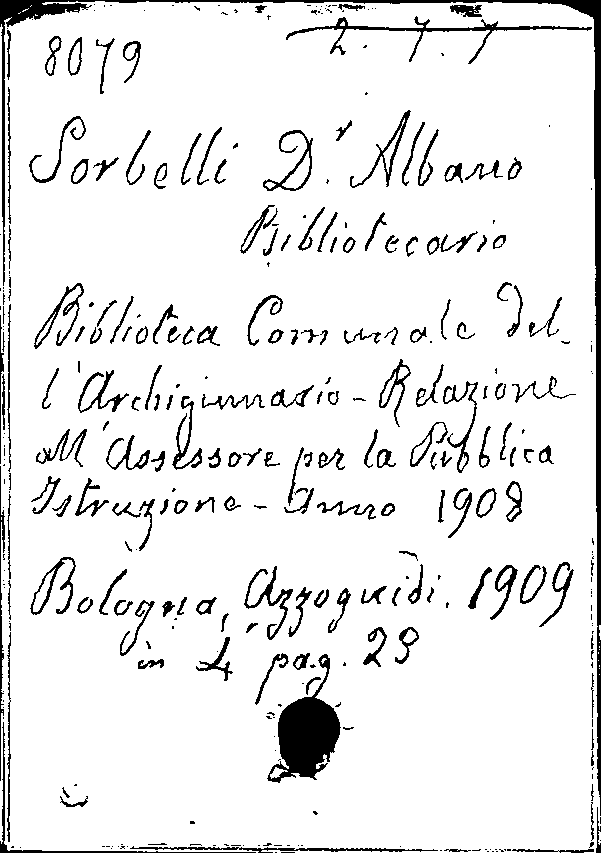 8079 2. 7. 7
Sorbelli D.r Albano
Bibliotecario
Biblioteca Comunale del-
l'Archiginnasio - Relazione
all'Assessore per la Pubblica
Istruzione - Anno 1908
Bologna, Azzoguidi. 1909
in 4° pag. 23